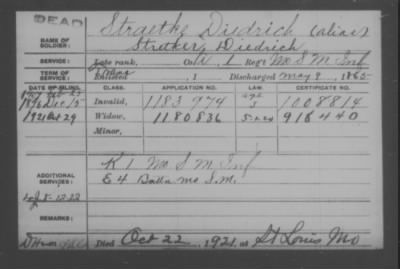 DEAD
NAME OF SOLDIER: Straetke Diedrich (alias)
Stratker, Diedrich
SERVICE: Late rank, Co. A, 1 Reg't Mo S M Inf
TERM OF SERVICE: Enlisted , 1 Discharged May 9, 1865
DATE OF FILING. CLASS. APPLICATION NO. LAW. CERTIFICATE NO.
Dec 15 Invalid, 1183 774 1008814
1921 Oct 29 Widow, 1180836 918440
Minor,
ADDITIONAL SERVICES: K 1 Mo S M Inf
E 4 Battn Mo S.M.
REMARKS:
Died Oct 22, 1921, at St Louis Mo